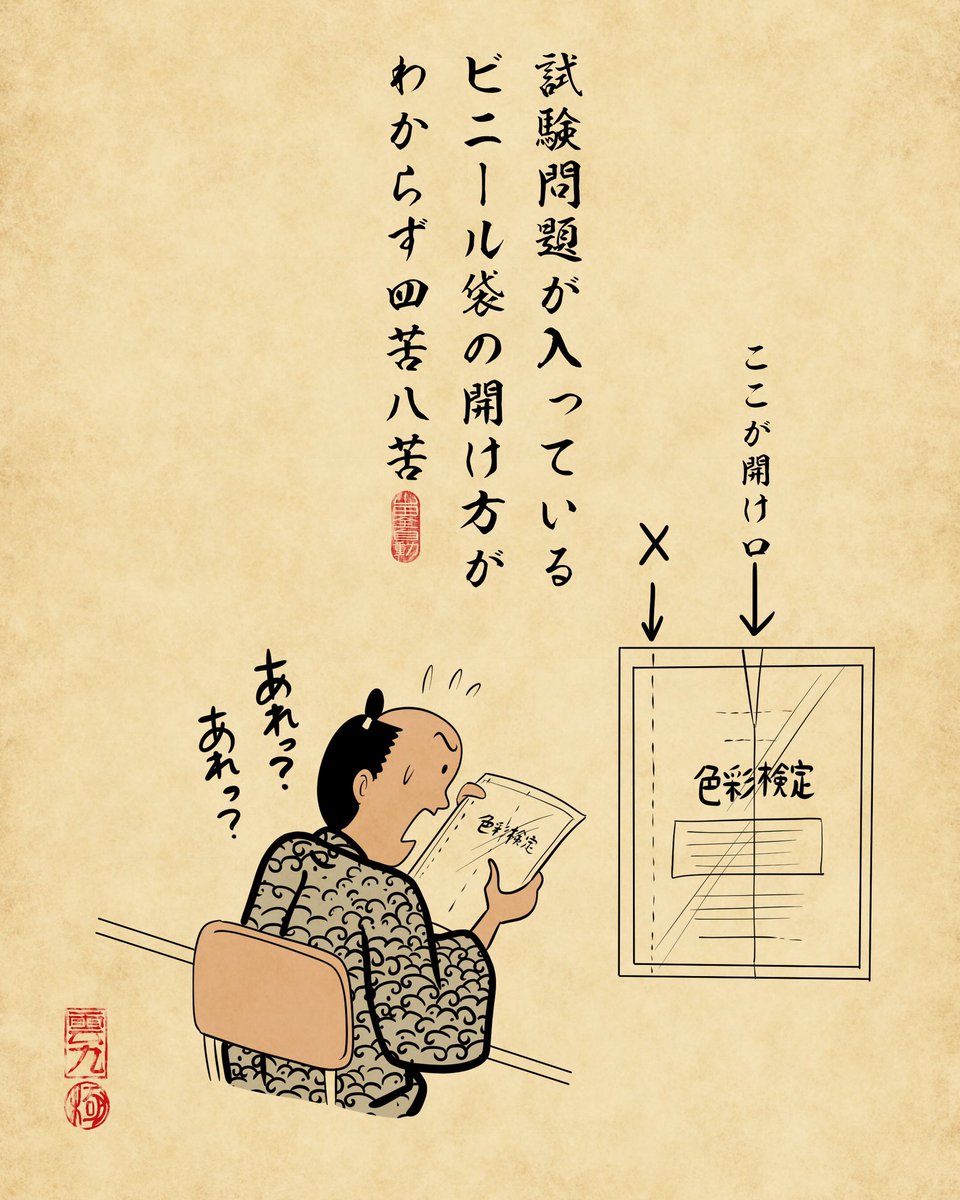 試験問題が入っている
ビニール袋の開け方が
わからず四苦八苦
ここが開け口
×
色彩検定
あれっ?
あれっ?
色彩検定